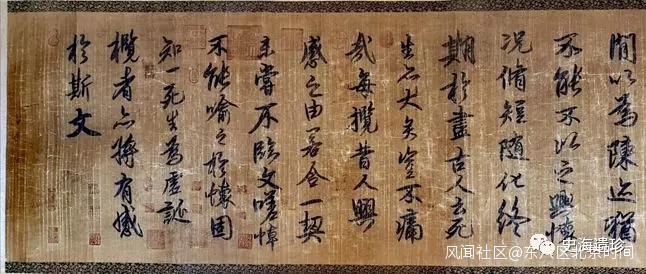 間以為陳迹猶
不能不以之興懷
況脩短隨化終
期於盡古人云死
生亦大矣豈不痛
哉每攬昔人興
感之由若合一契
未嘗不臨文嗟悼
不能喻之於懷固
知一死生為虛誕
攬者亦將有感
於斯文
史海遗珍
风闻社区@东八区北京时间